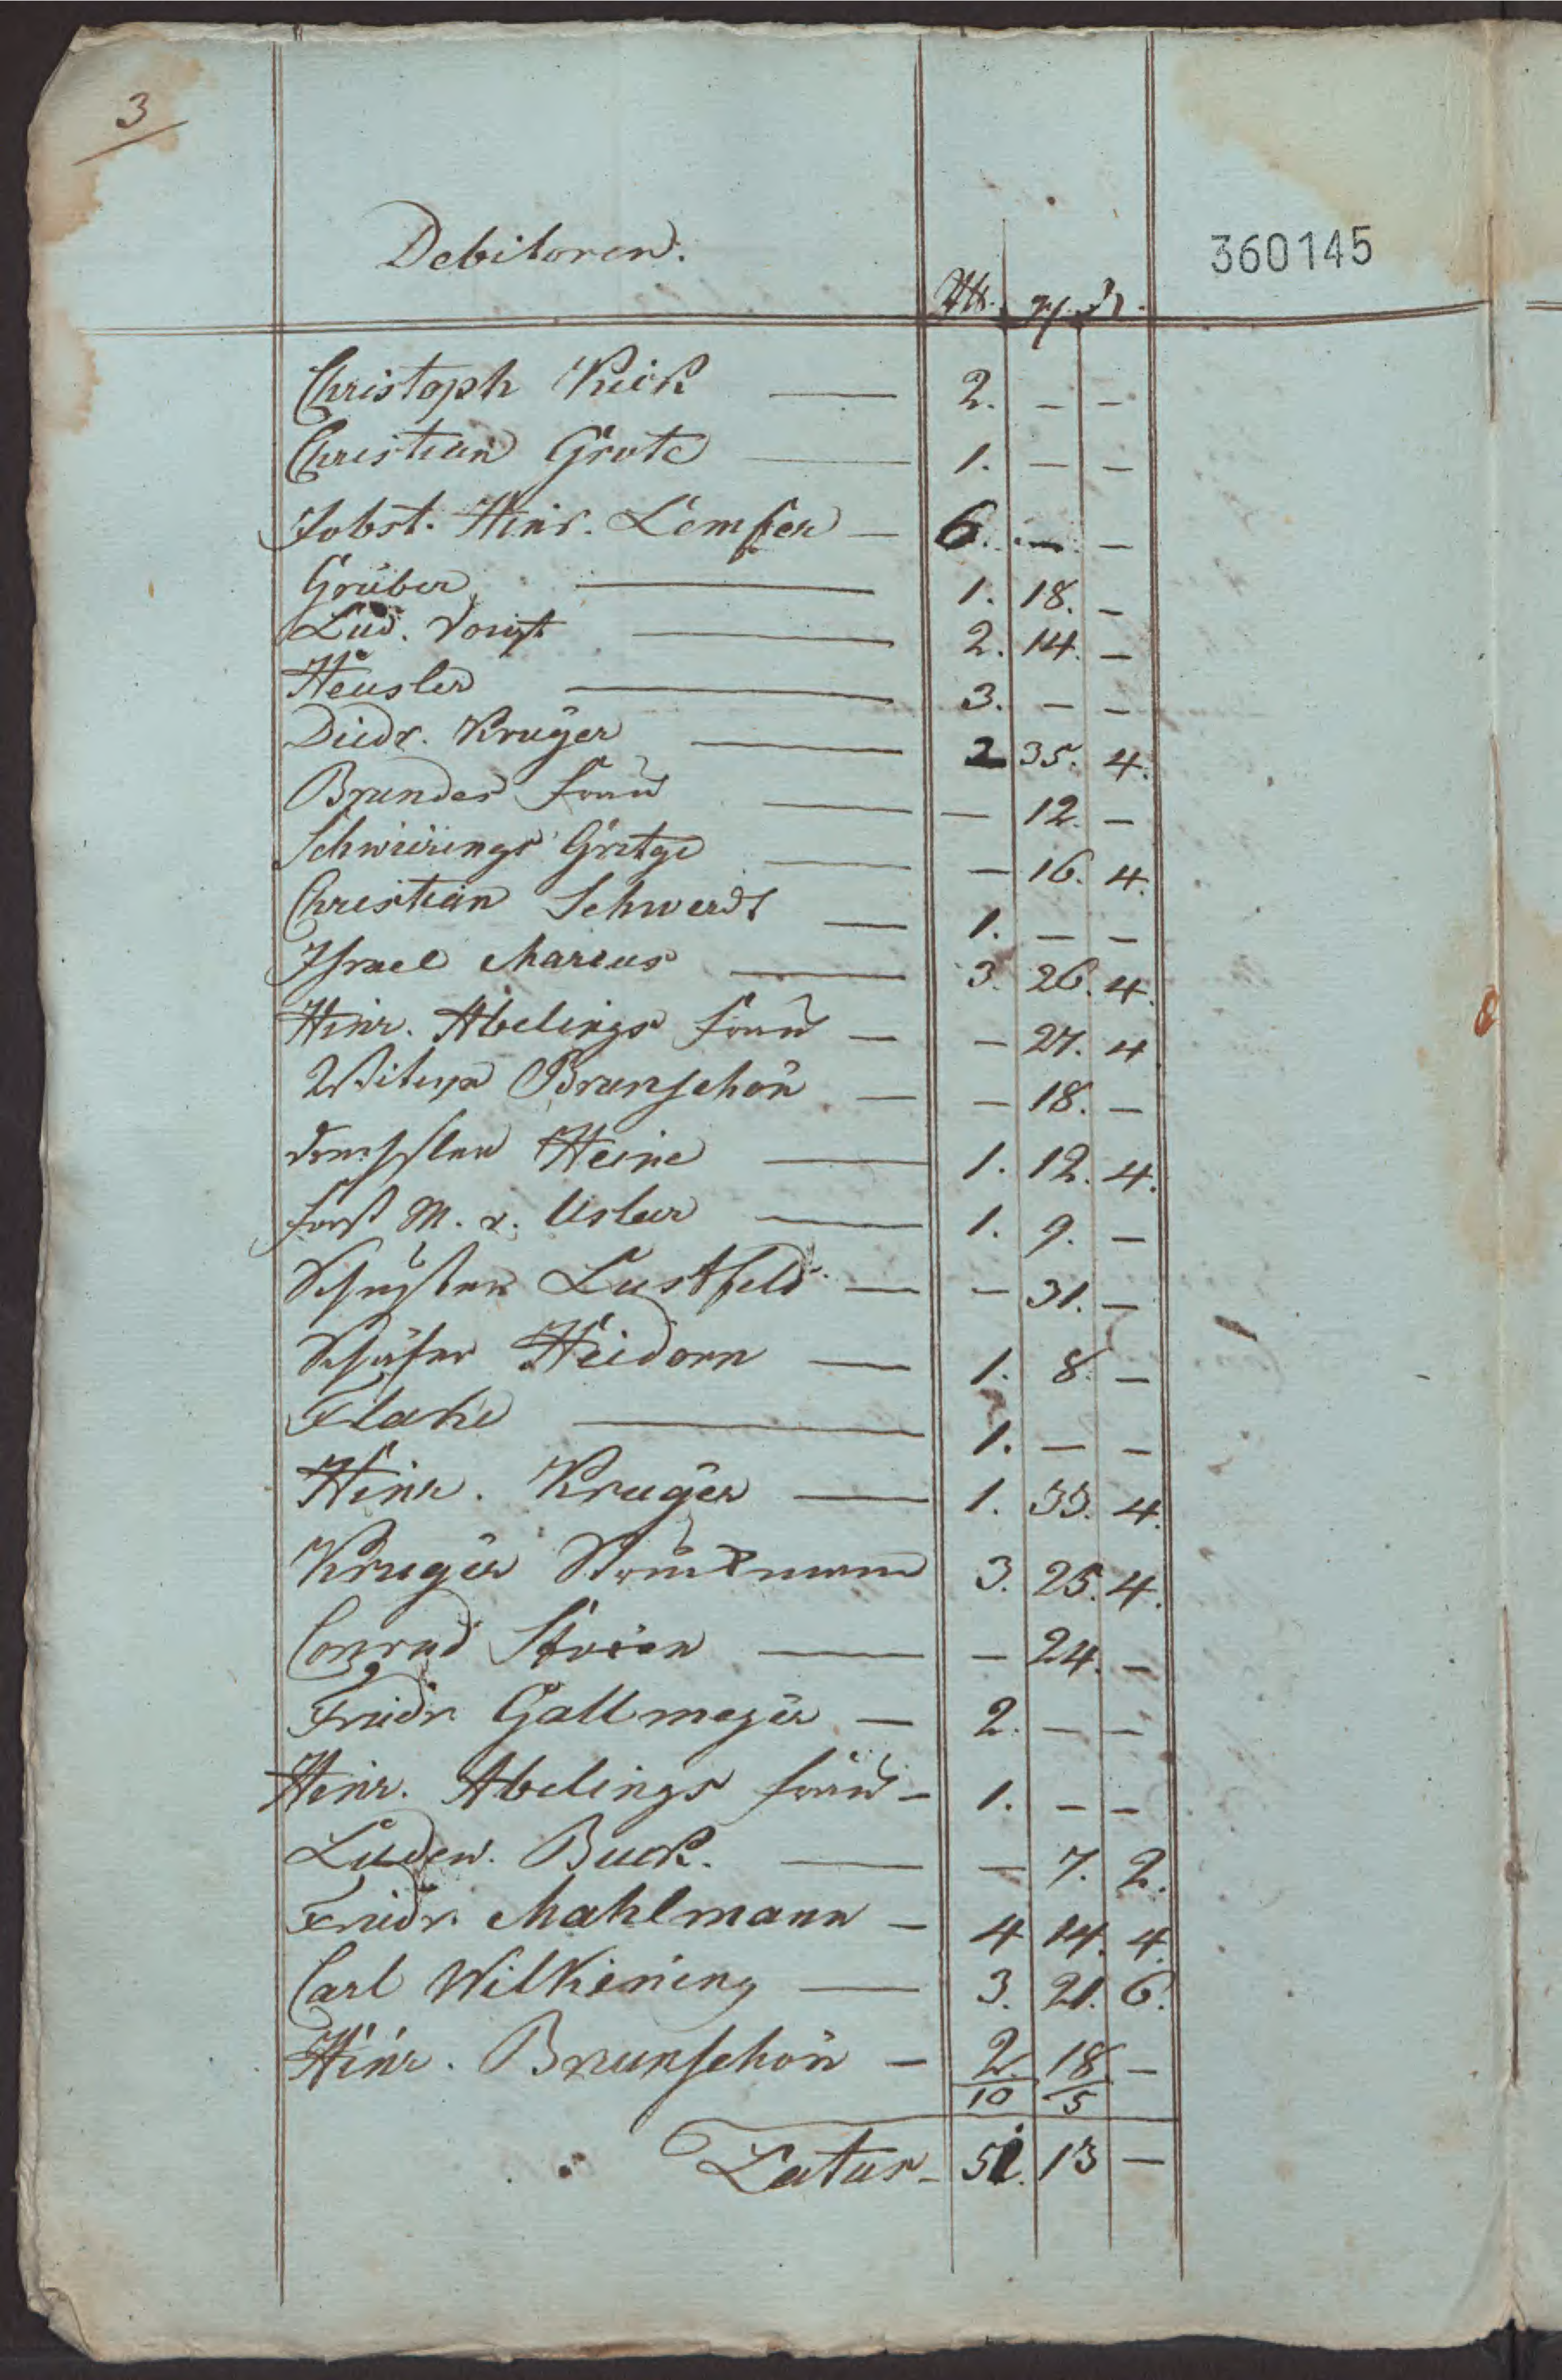 3
Debitoren.
360145
Rtl. gl. ₰.
Christoph Keick — 2. — —
Christian Grote — 1. — —
Jobst. Hinr. Lempfer — 6. — —
Grüber — 1. 18. —
Lud. Voigt — 2. 14. —
Heusler — 3. — —
Diedr. Kruger — 2 35. 4.
Brandes Frau — — 12. —
Schwierings Gretge — — 16. 4.
Christian Schwerdt — 1. — —
Israel Marcus — 3. 26. 4.
Hinr. Abelings Frau — — 27. 4
Witwe Brunschön — — 18. —
Heine — 1. 12. 4.
Forst M. v. Uslar — 1. 9. —
Schuster Lustfeld — — 31. —
Schäfer Heidorn — 1. 8. —
Flake — 1. — —
Hinr. Kruger — 1. 33. 4.
Kruger 3. 25. 4.
Conrad — — 24. —
Friedr. Gallmeyer — 2. — —
Heinr. Abelings Frau — 1. — —
Ludew. Buck. — — 7. 2.
Friedr. Mahlmann — 4 14. 4.
Carl Wilkening — 3. 21. 6.
Hinr. Brunschön — 2. 18 —
10 5
Latus — 51. 13 —